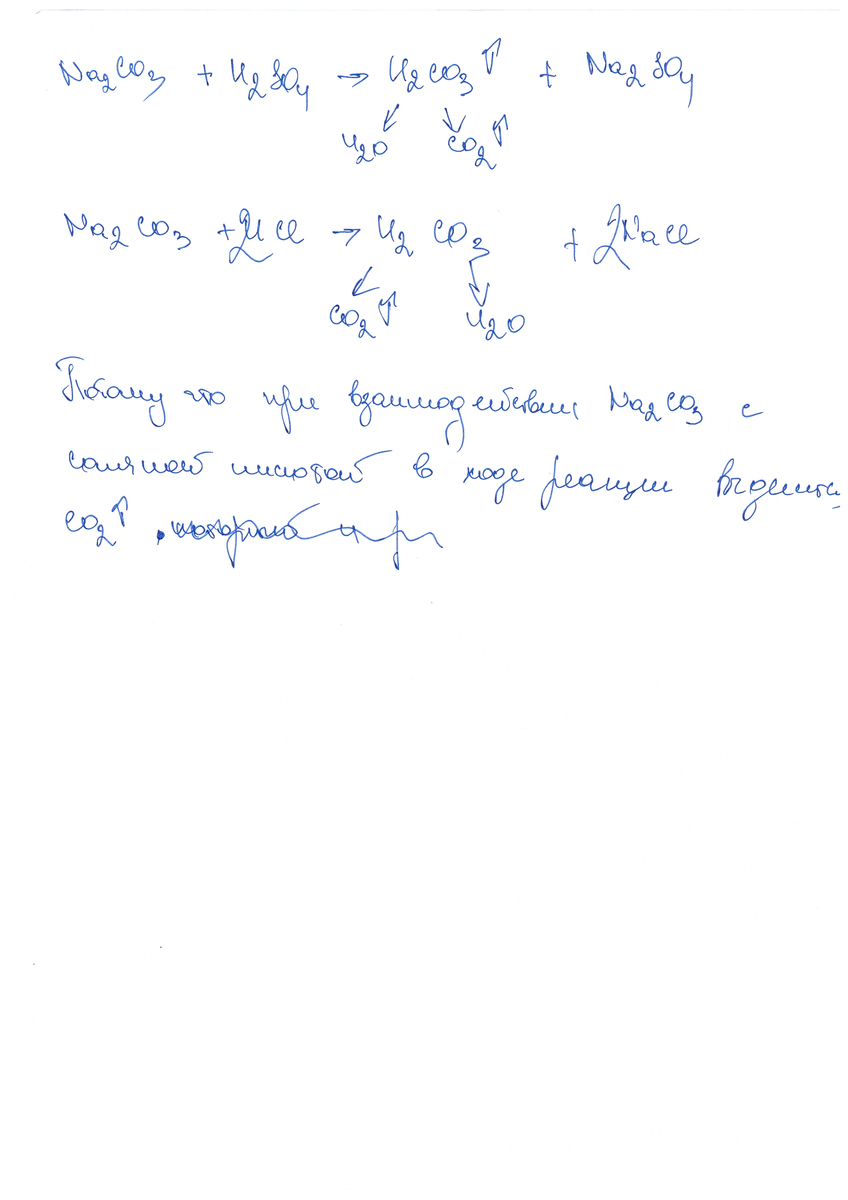 Na₂CO₃ + H₂SO₄ → H₂CO₃↑ + Na₂SO₄
↙ ↘
H₂O CO₂↑
Na₂CO₃ + 2HCl → H₂CO₃ + 2NaCl
↙ ↘
CO₂↑ H₂O
Потому что при взаимодействии Na₂CO₃ с
соляной кислотой в ходе реакции выделится
CO₂↑